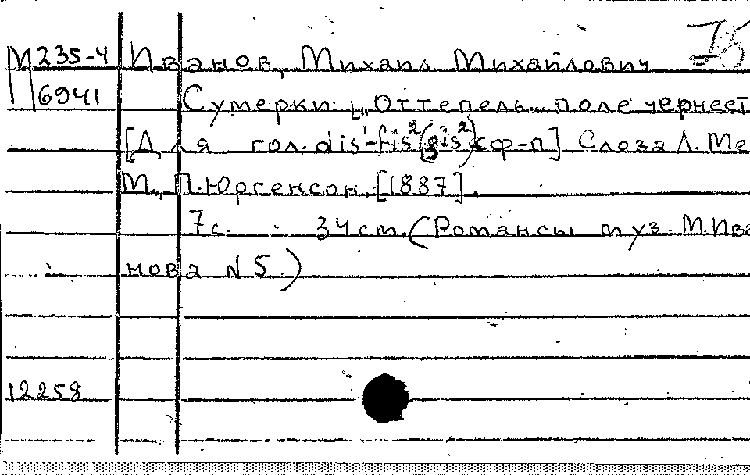 М 235-4 Иванов, Михаил Михайлович
6941 Сумерки. „Оттепель... поле чернеет
[Для гол. dis¹-fis²(gis²) с ф-п] Слова Д. Ме
М., П. Юргенсон, [1887].
7с. 34см. (Романсы муз. М. Ива
нова N 5.)
12258